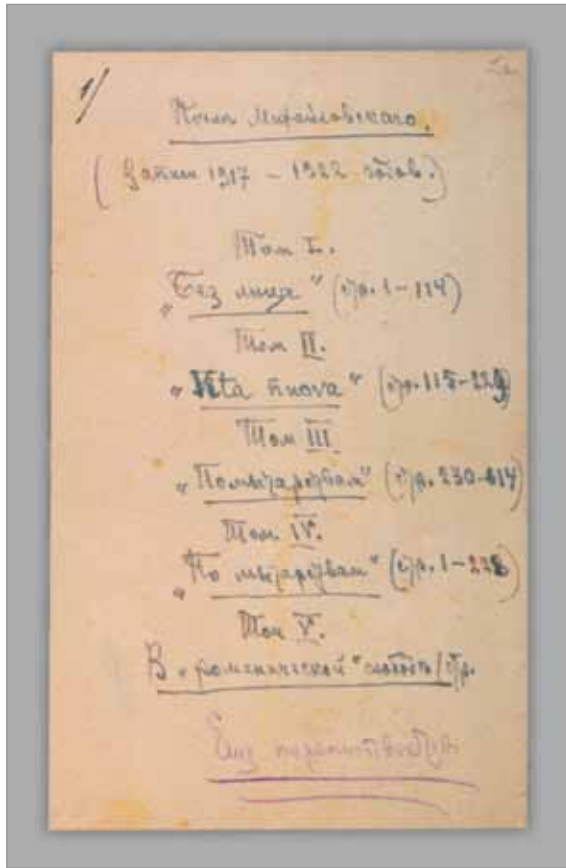 1/
Михайловскаго.
(Записки 1917 – 1922 годов.)
Том I.
"Без лица" (стр. 1 – 114)
Том II.
"Vita nuova" (стр. 115-229)
Том III
"По мытарствам" (стр. 230-614)
Том IV.
"По мытарствам" (стр. 1-228)
Том V.
В "романической" стр.